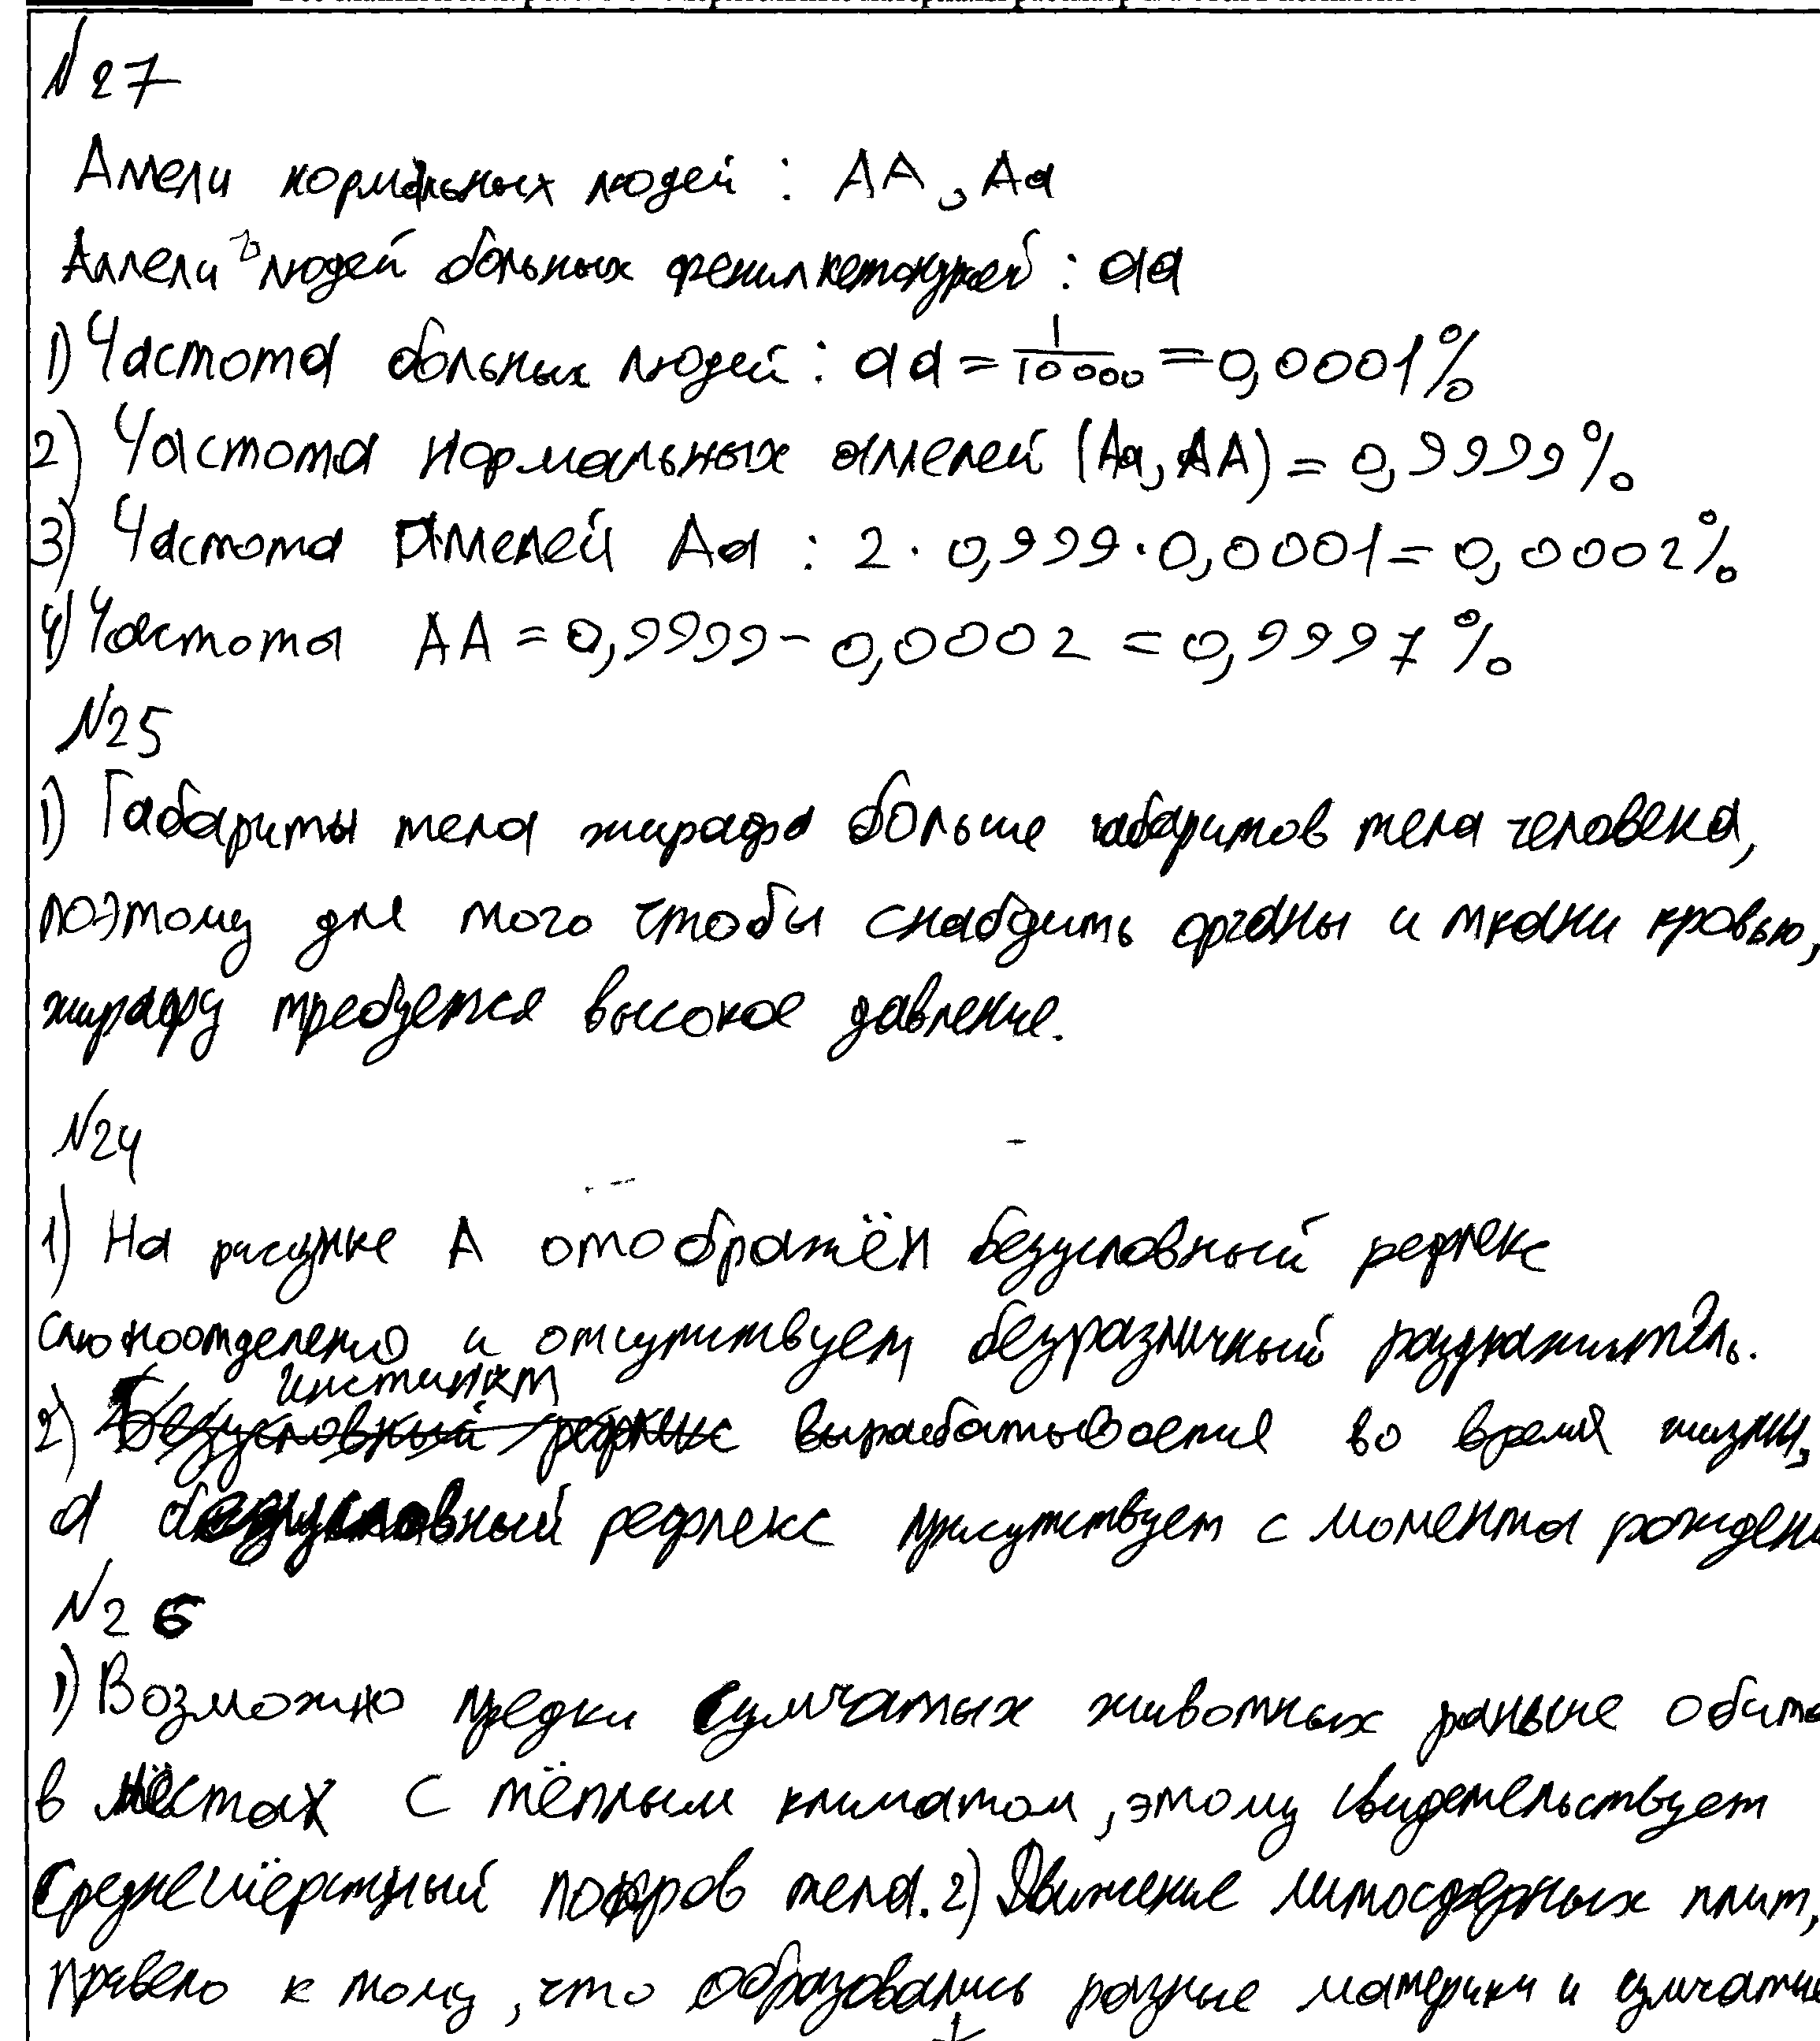 №27
Аллели нормальных людей : АА, Аа
Аллели людей больных фенилкетонурией : аа
1) Частота больных людей : аа = 1/10 000 = 0,0001%
2) Частота нормальных аллелей (Аа, АА) = 0,9999%
3) Частота аллелей Аа : 2 · 0,999 · 0,0001 = 0,0002%
4) Частоты АА = 0,9999 - 0,0002 = 0,9997%
№25
1) Габариты тела жирафа больше габаритов тела человека,
поэтому для того чтобы снабдить органы и ткани кровью,
жирафу требуется высокое давление.
№24
1) На рисунке А отображён безусловный рефлекс
слюноотделено и отсутствует безразличный раздражитель.
инстинкт
2) Безусловный рефлекс вырабатывается во время жизни,
а безусловный рефлекс присутствует с момента рождени
№26
1) Возможно предки сумчатых животных раньше обита
в местах с тёплым климатом, этому свидетельствует
среднешёрстный покров тела. 2) Движение литосферных плит,
привело к тому, что образовались разные материки и сумчатые